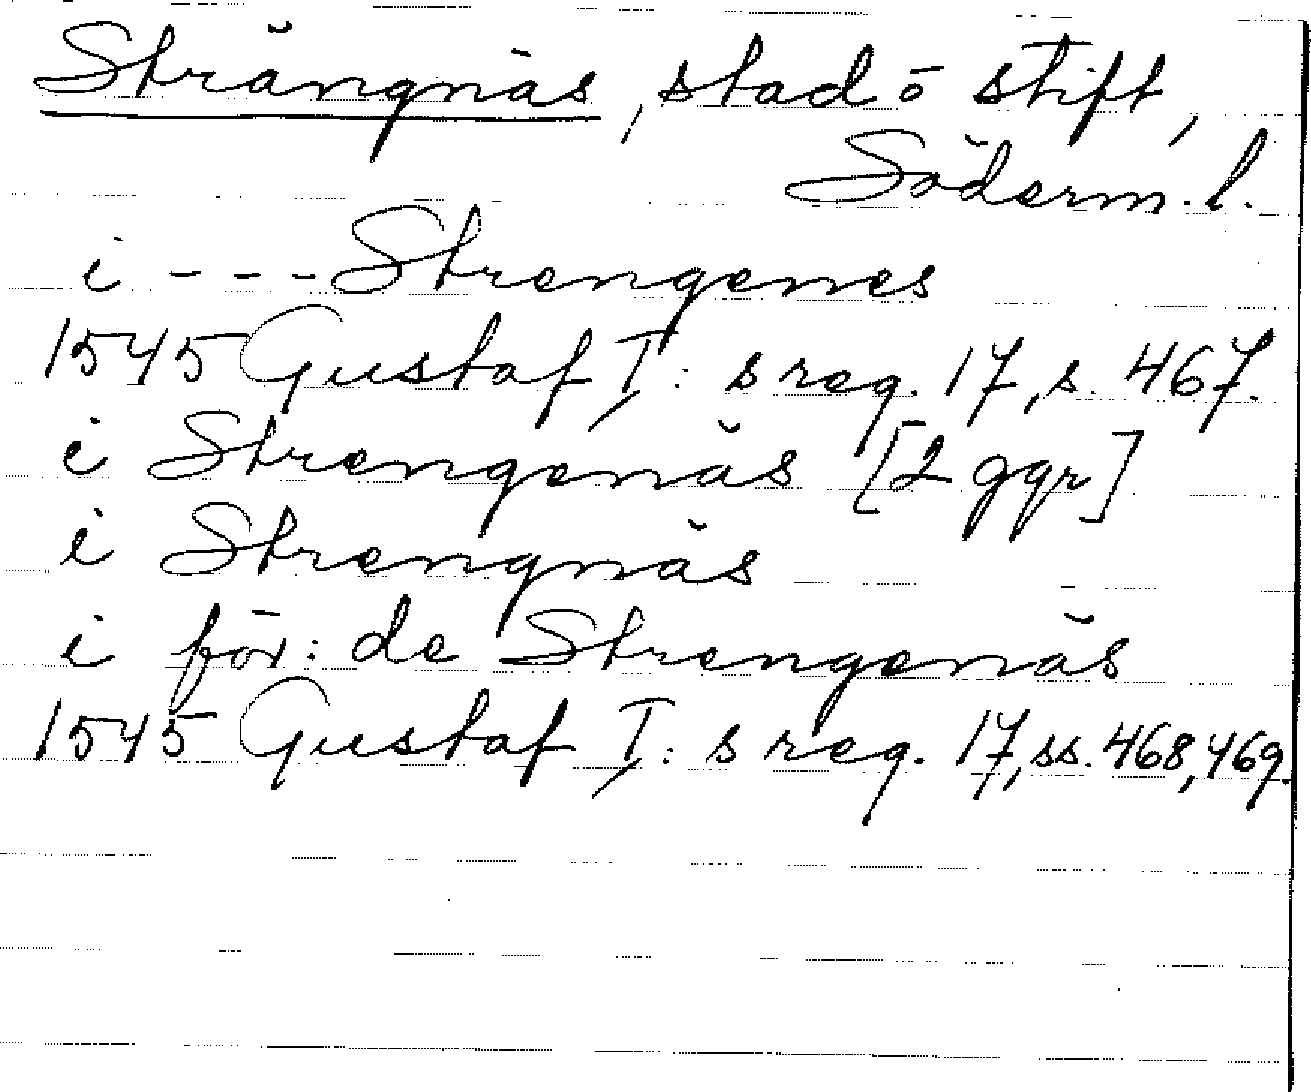 Strängnäs, stad o stift,
Söderm. l.
i - - - Strengenes
1545 Gustaf I: s reg. 17, s. 467.
i Strengenäs [2 ggr]
i Strengnäs
i för: de Strengenäs
1545 Gustaf I: s reg. 17, ss. 468, 469.